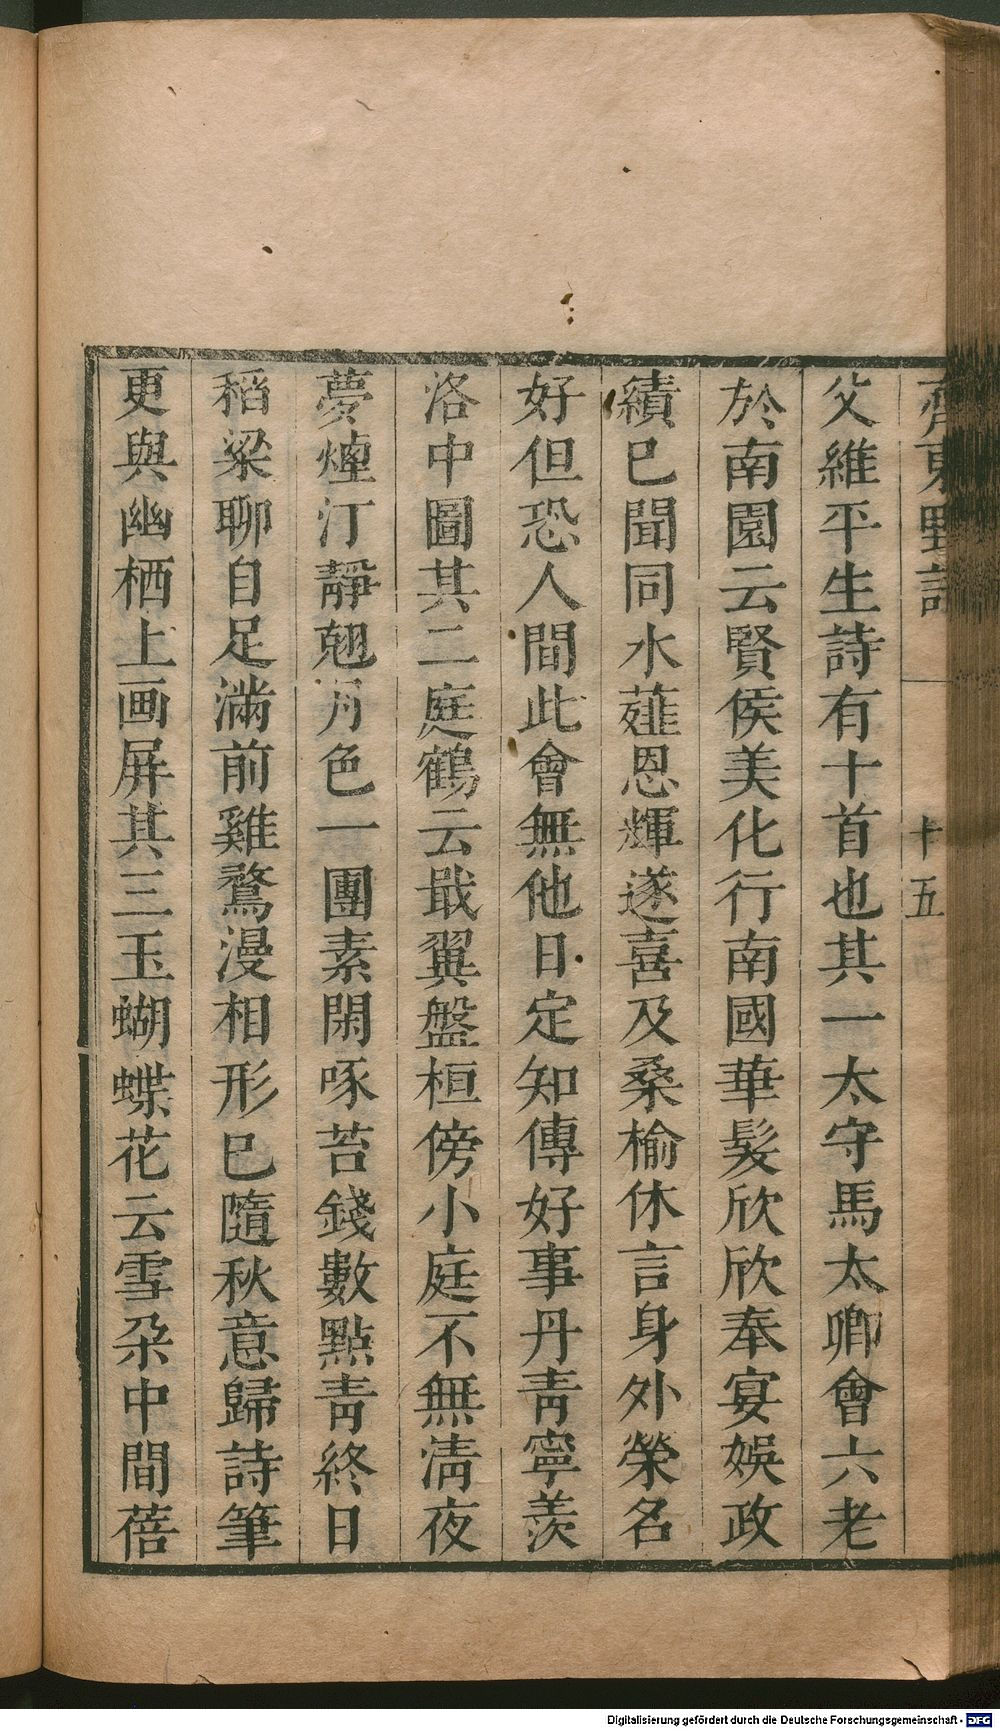 齊東野語
十五
父維平生詩有十首也其一太守馬太卿會六老
於南園云賢侯美化行南國華髮欣欣奉宴娛政
績已聞同水薤恩輝遂喜及桑榆休言身外榮名
好但恐人間此會無他日定知傳好事丹靑寧羨
洛中圖其二庭鶴云戢翼盤桓傍小庭不無淸夜
夢煙汀靜翹月色一團素閑啄苔錢數點靑終日
稻粱聊自足滿前雞鶩漫相形已隨秋意歸詩筆
更與幽栖上画屏其三玉蝴蝶花云雪朶中間蓓
Digitalisierung gefördert durch die Deutsche Forschungsgemeinschaft - DFG